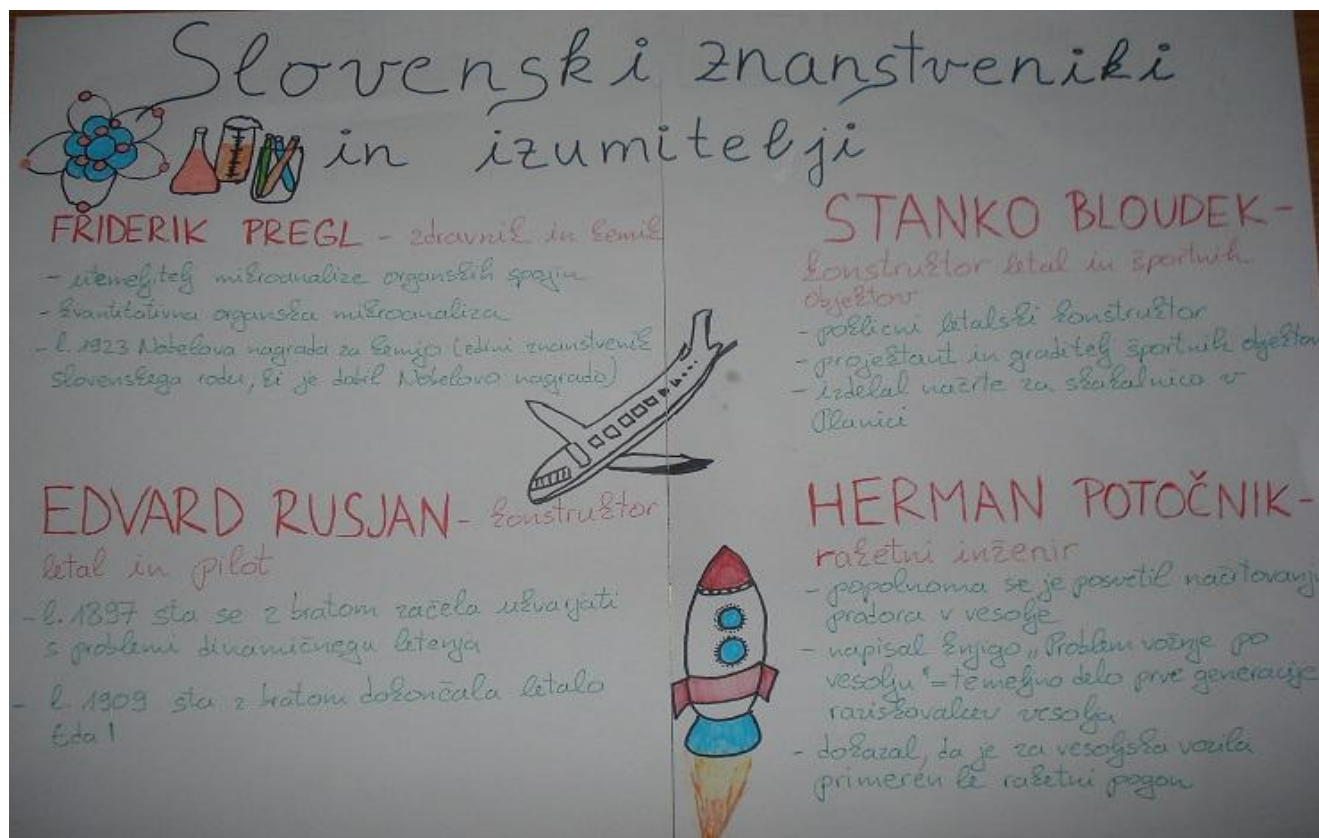 Slovenski znanstveniki
in izumitelji
FRIDERIK PREGL - zdravnik in kemik
- utemeljitelj mikroanalize organskih spojin
- kvantitativna organska mikroanaliza
- l. 1923 Nobelova nagrada za kemijo (edini znanstvenik
slovenskega rodu, ki je dobil Nobelovo nagrado)
EDVARD RUSJAN - konstruktor
letal in pilot
- l. 1897 sta se z bratom začela ukvarjati
s problemi dinamičnega letenja
- l. 1909 sta z bratom dokončala letalo
Eda 1
STANKO BLOUDEK -
konstruktor letal in športnih
objektov
- poklicni letalski konstruktor
- projektant in graditelj športnih objektov
- izdelal načrte za skakalnico v
Planici
HERMAN POTOČNIK -
raketni inženir
- popolnoma se je posvetil načrtovanj
prodora v vesolje
- napisal knjigo „Problem vožnje po
vesolju“ = temeljno delo prve generacije
raziskovalcev vesolja
- dokazal, da je za vesoljska vozila
primeren le raketni pogon